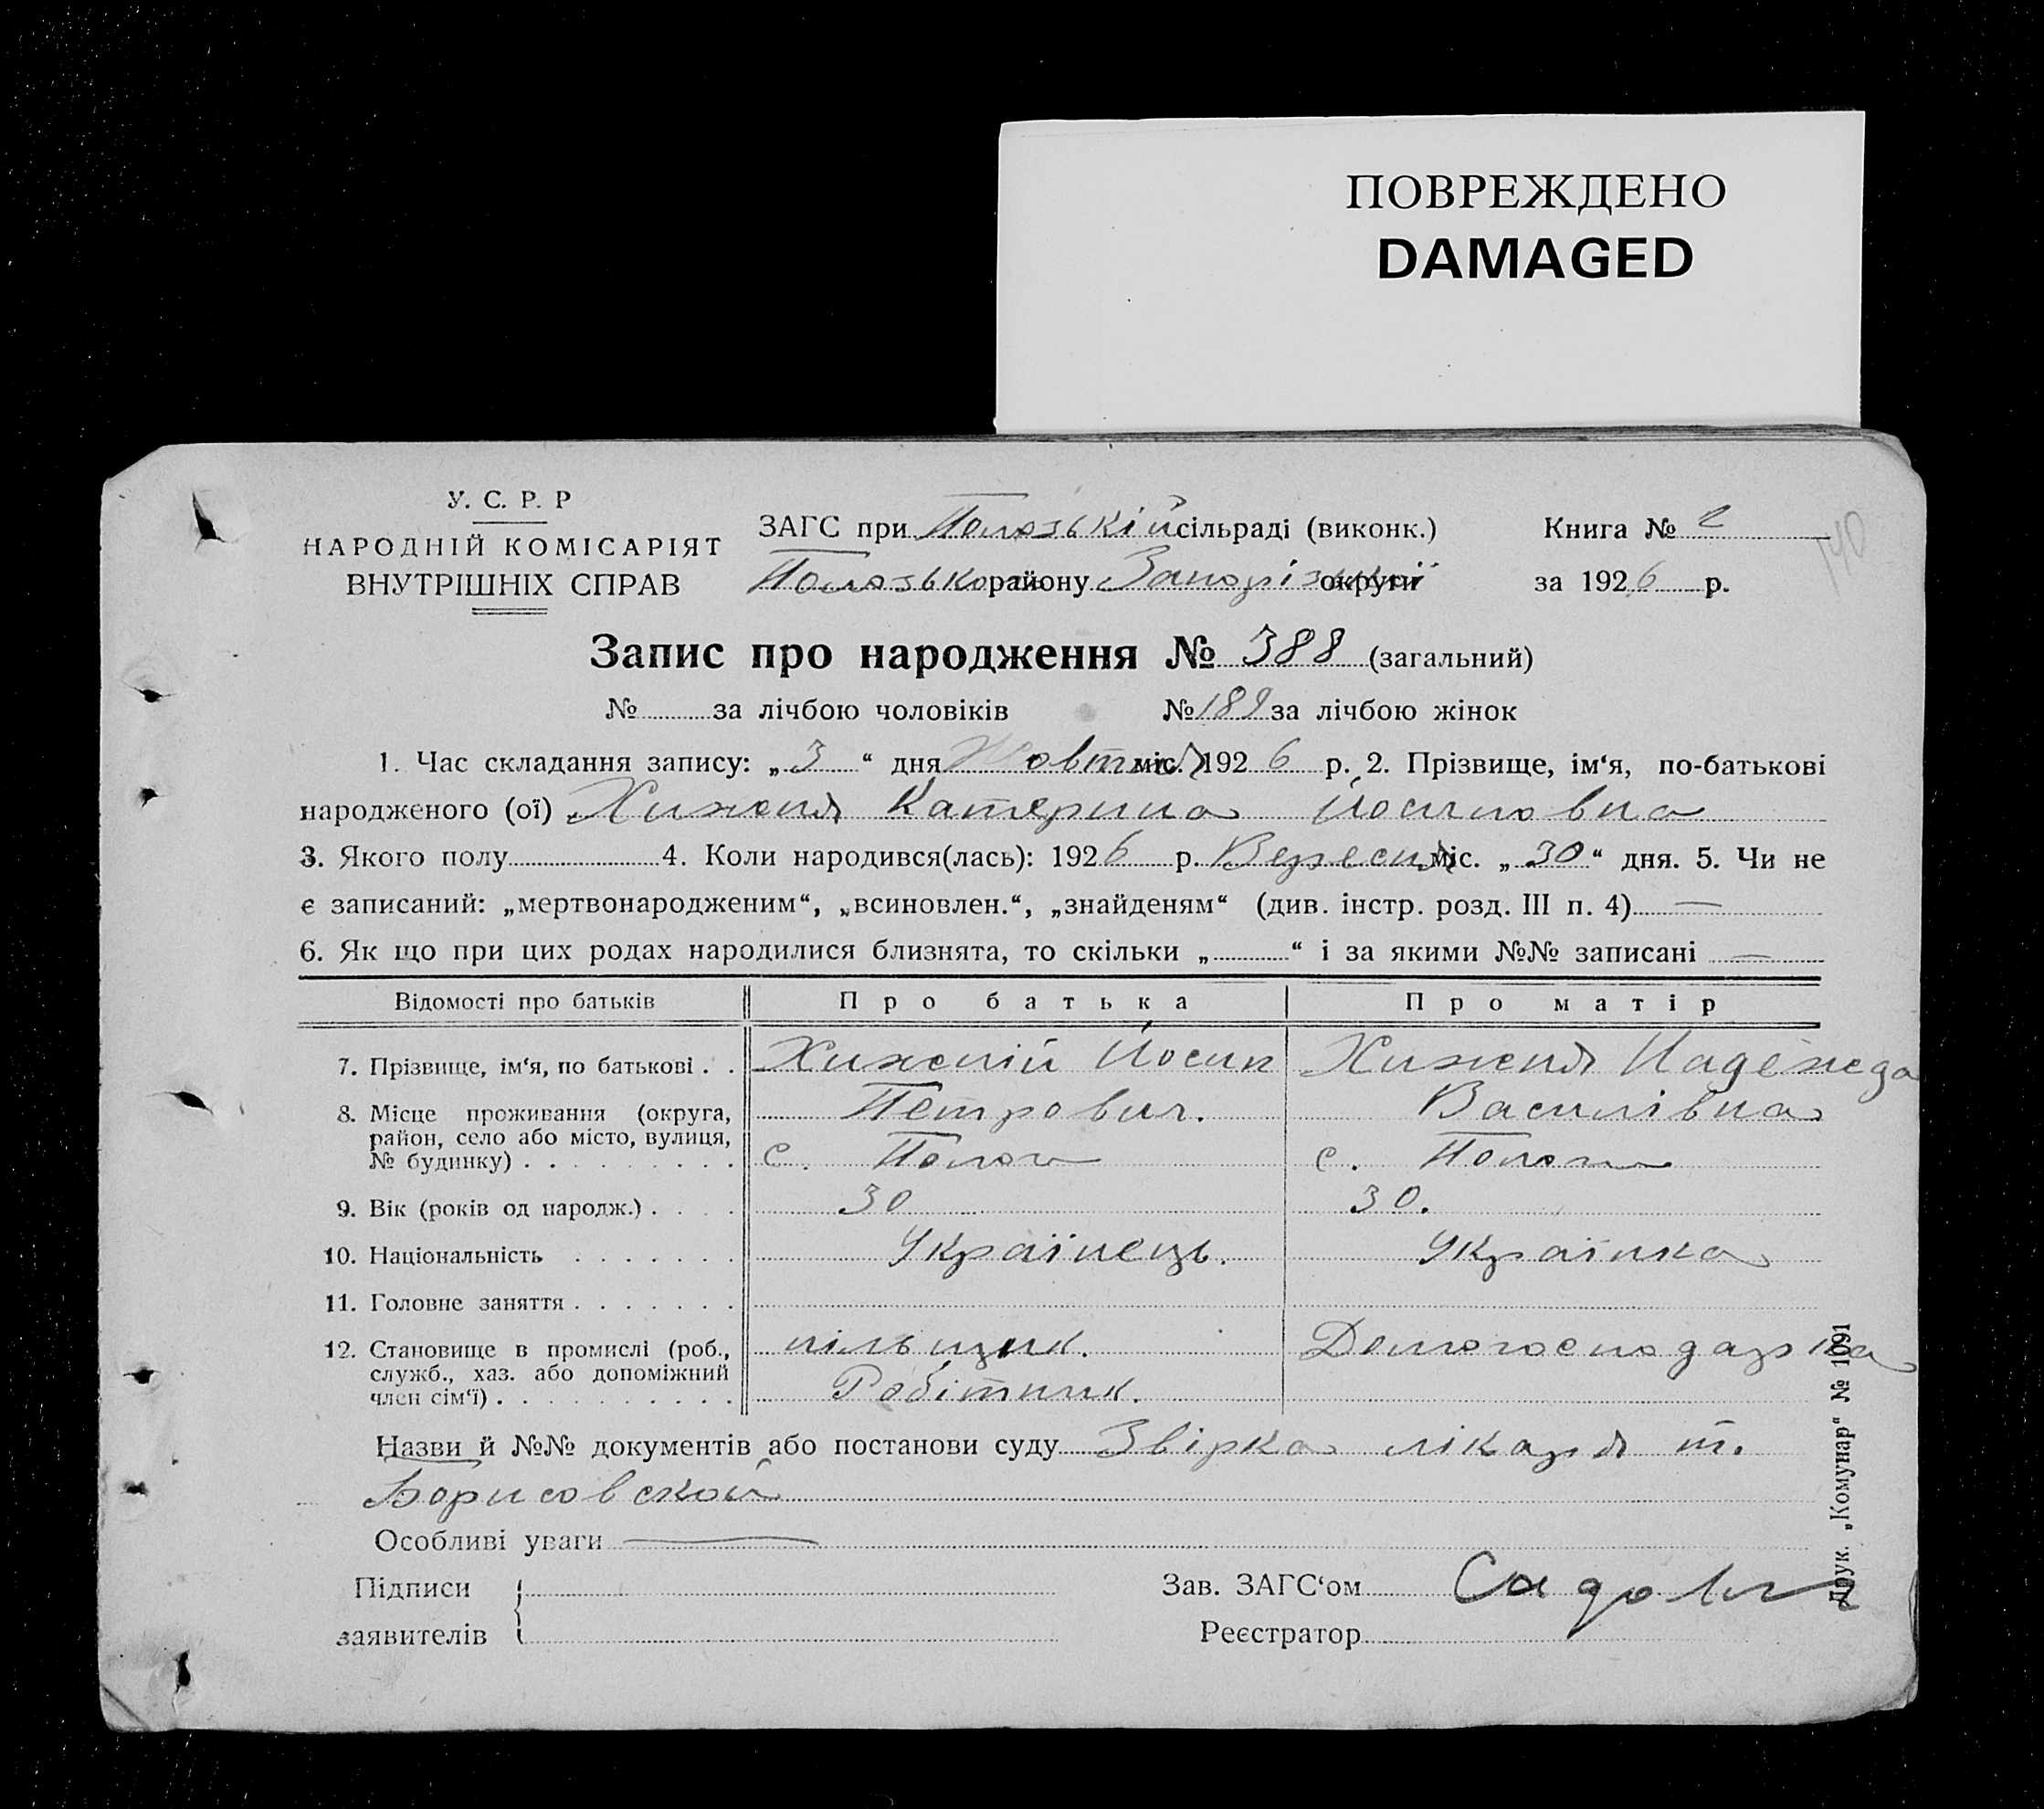 ПОВРЕЖДЕНО
DAMAGED
У. С. Р. Р
НАРОДНІЙ КОМІСАРІЯТ
ВНУТРІШНІХ СПРАВ
ЗАГС при Пологській сільраді (виконк.)
Книга № 2
140
району Запорізької округи
за 1926 р.
Запис про народження № 388 (загальний)
№ за лічбою чоловіків № 189 за лічбою жінок
1. Час складання запису: „3“ дня Жовтня міс. 1926 р. 2. Прізвище, ім‘я, по-батькові
народженого (ої) Хижня Катерина Йосиповна
3. Якого полу 4. Коли народився(лась): 1926 р. Вересня міс. „30“ дня. 5. Чи не
є записаний: „мертвонародженим“, „всиновлен.“, „знайденям“ (див. інстр. розд. III п. 4) —
6. Як що при цих родах народилися близнята, то скільки „ “ і за якими №№ записані —
Відомості про батьків Про батька Про матір
7. Прізвище, ім‘я, по батькові . . Йосип Хижня Надежда
Петрович. Василівна
8. Місце проживання (округа,
район, село або місто, вулиця,
№ будинку) . . . . . . . . . с. Пологи с. Пологи
9. Вік (років од народж.) . . . . 30 30.
10. Національність . . . . . . . Українець. Українка
11. Головне заняття . . . . . . .
12. Становище в промислі (роб.,
служб., хаз. або допоміжний
член сім‘ї) . . . . . . . . . . Робітник. Домогосподарка
Назви й №№ документів або постанови суду Звірка лікаря т.
Борисовской
Особливі уваги —
Підписи
заявителів
Зав. ЗАГС‘ом
Реєстратор
Друк. „Комунар“ № 1091